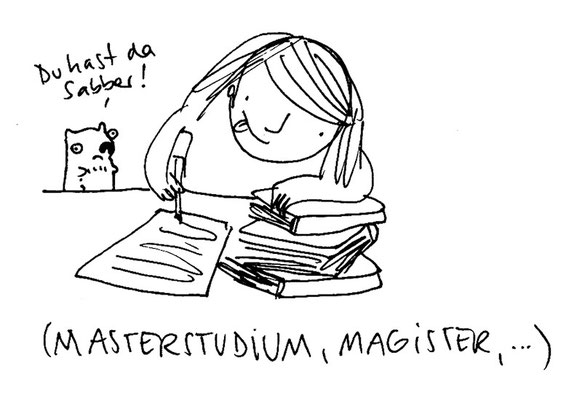 Du hast da
Sabber!
(MASTERSTUDIUM, MAGISTER, ...)